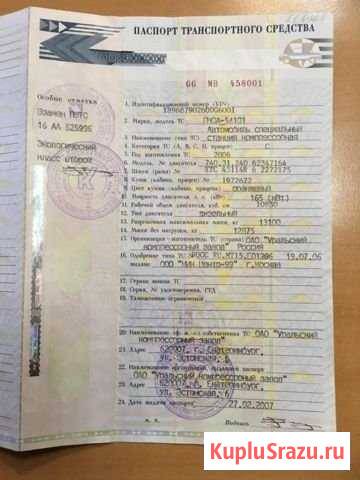 ПАСПОРТ ТРАНСПОРТНОГО СРЕДСТВА
66 МВ 458001
Особые отметки
Взамен ПШТС
16 АА 525996
Экологический
класс второй
1. Идентификационный номер (VIN)
2. Марка, модель ТС ГНОА-54101
Автомобиль специальный
3. Наименование (тип ТС) станция компрессорная
4. Категория ТС (А, В, С, D, прицеп) С
5. Год изготовления ТС 2006
6. Модель, № двигателя 740.31.240 62347164
7. Шасси (рама) № ХТС 431148 6 2272175
8. Кузов (кабина, прицеп) № 1972622
9. Цвет кузова (кабины, прицепа) оранжевый
10. Мощность двигателя, л. с. (кВт) 165 (кВт)
11. Рабочий объем двигателя, куб. см 10850
12. Тип двигателя дизельный
13. Разрешенная максимальная масса, кг 13100
14. Масса без нагрузки, кг 12875
15. Организация - изготовитель ТС (страна) ОАО "Уральский
компрессорный завод" Россия
16. Одобрение типа ТС № 19.07.06
г.Москва
17. Страна вывоза ТС
18. Серия, № ТД, ТПО
19. Таможенные ограничения
20. Наименование (ф. и. о.) собственника ТС ОАО "Уральский
компрессорный завод"
21. Адрес 620007, г. Екатеринбург,
ул. Эстонская, 6
22. Наименование организации, выдавшей паспорт
ОАО "Уральский компрессорный завод"
23. Адрес 620007 г. Екатеринбург,
ул. Эстонская, 6
24. Дата выдачи паспорта 27.02.2007
М. П. Подпись
KupluSrazu.ru